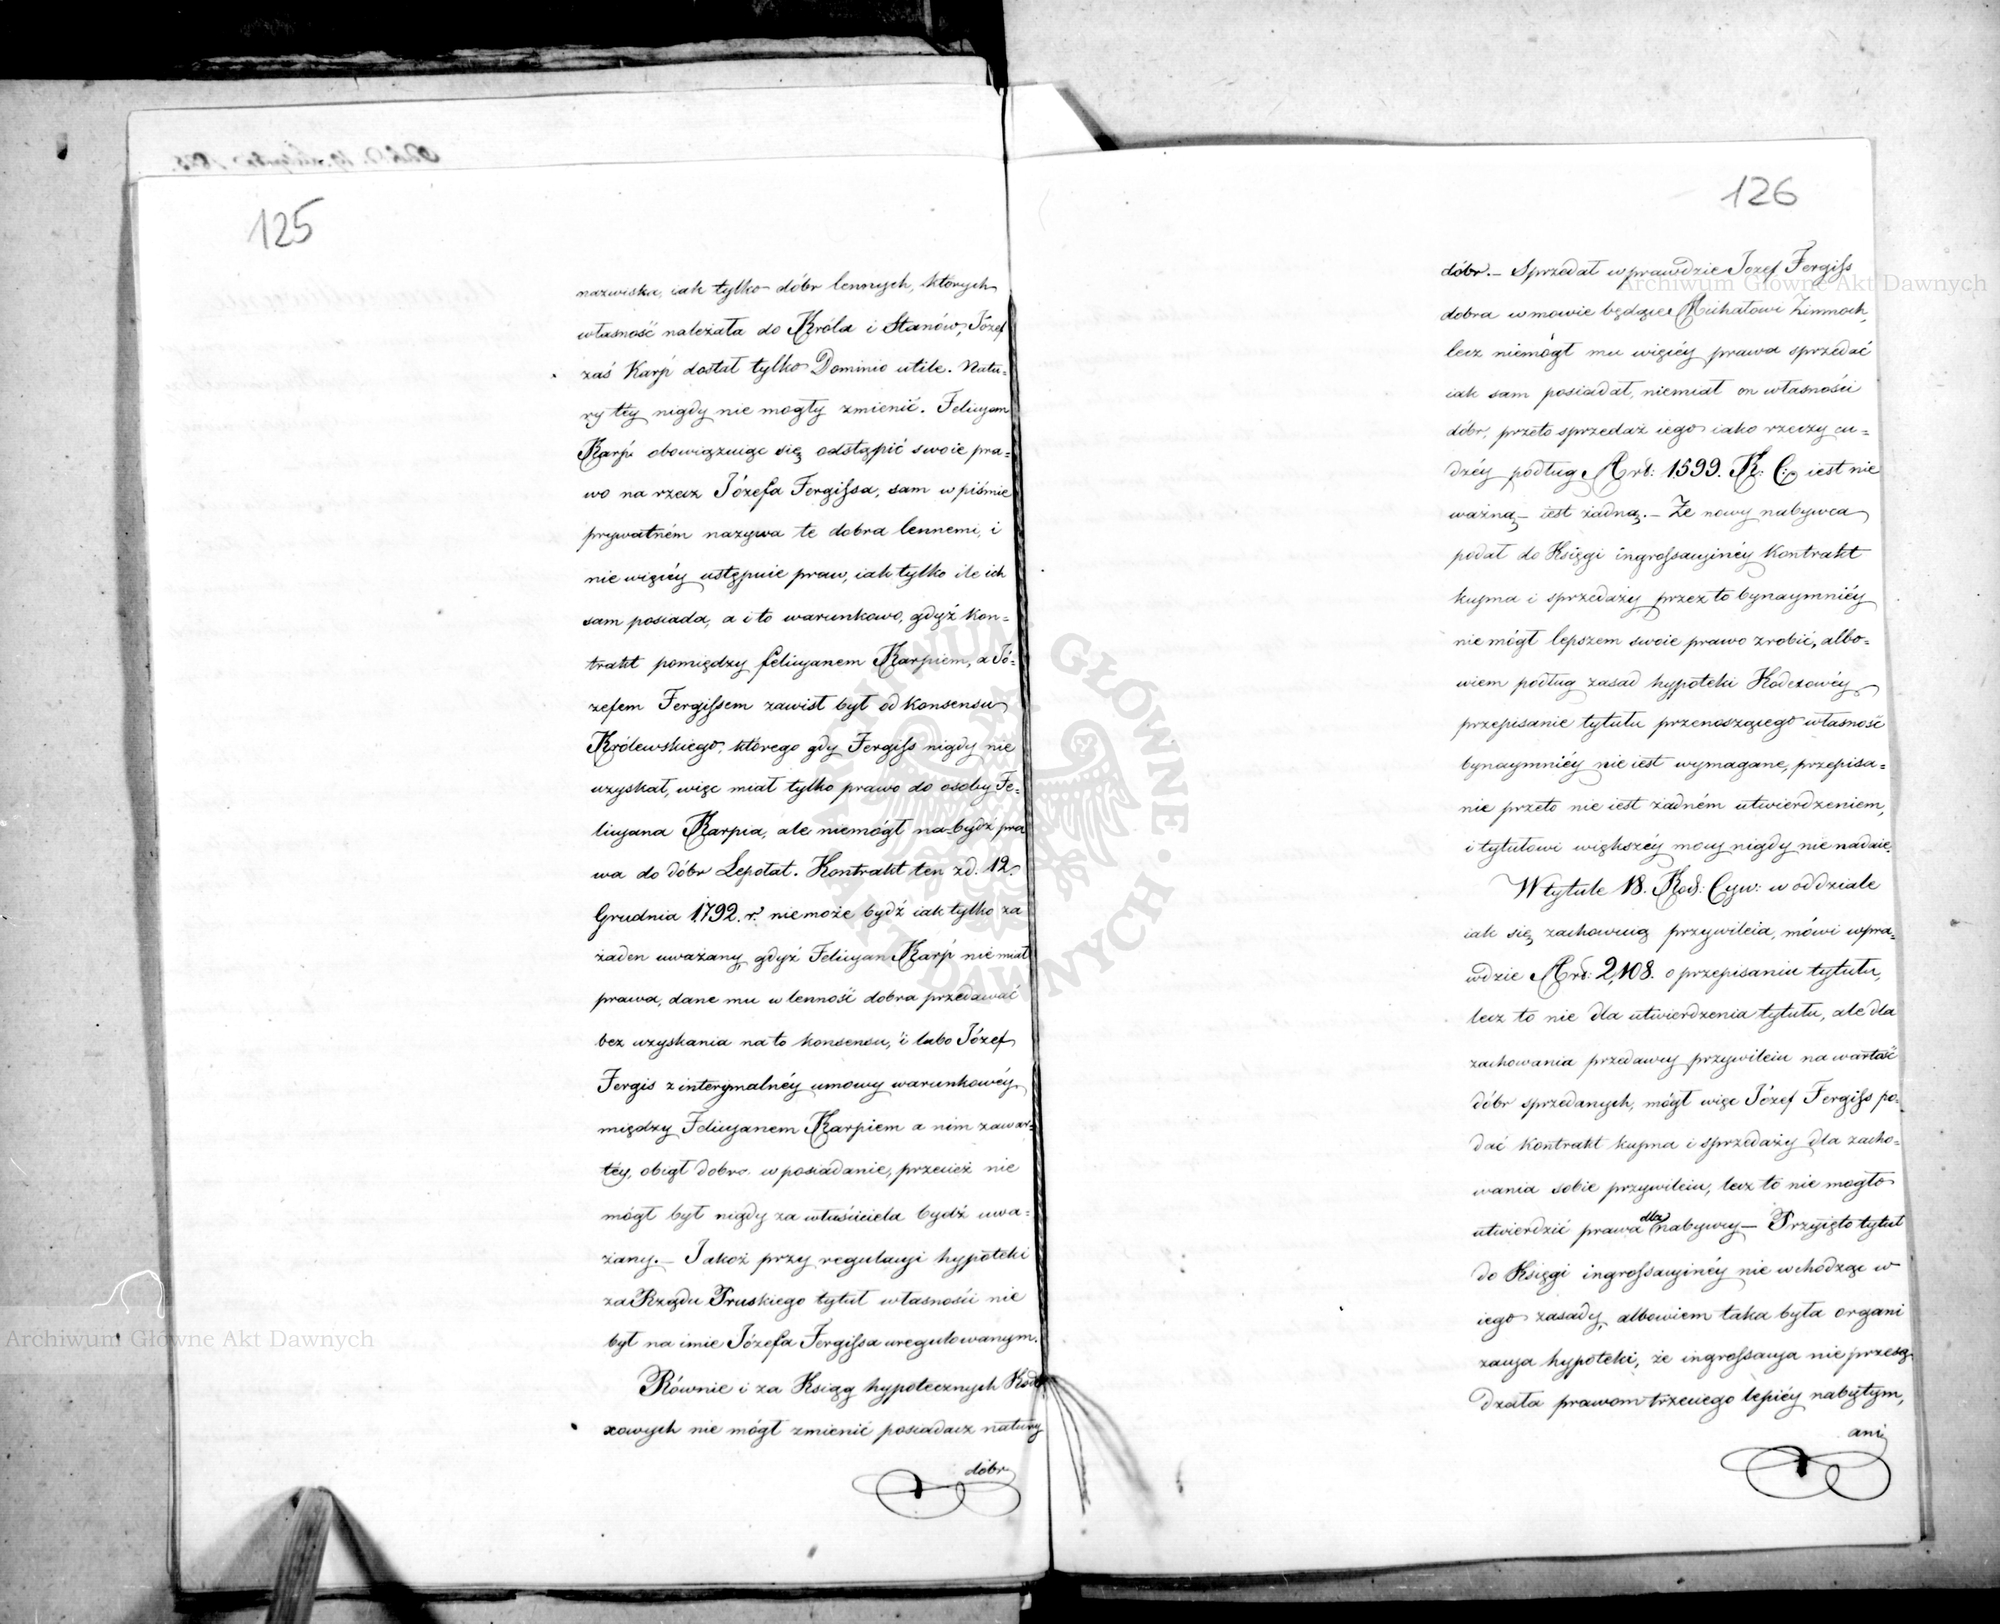 125
nazwiska, iak tylko dóbr lennych, których
własność należała do Króla i Stanów, Józef
zaś Karṕ dostał tylko Dominio utile. Natu=
ry tey nigdy nie mogły zmienić. Felicyan
Karṕ obowiązuiąc się odstąpić swoie pra=
wo na rzecz Józefa Fergissa, sam w piśmie
prywatném nazywa te dobra lennemi, i
nie więcéy ustępuie praw, iak tylko ile ich
sam posiada, a i to warunkowo, gdyż Kon=
trakt pomiędzy felicyanem Karpiem, a Jó=
zefem Fergissem zawisł był od konsensu
Królewskiego, którego gdy Fergiss nigdy nie
uzyskał, więc miał tylko prawo do osoby Fe=
licyana Karpia, ale niemógł nabydź pra
wa do dóbr Lepołat. Kontrakt ten z d. 12.
Grudnia 1792. r. niemoże bydź iak tylko za
żaden uważany, gdyż Felicyan Karṕ nie miał
prawa, dane mu w lenność dobra przedawać
bez uzyskania na to konsensu, i lubo Józef
Fergis z interymalnéy umowy warunkowéy
między Felicyanem Karpiem a nim zawar=
téy, obiął dobra w posiadanie, przecież nie
mógł być nigdy za właściciela bydź uwa=
żany. — Jakoż przy regulacyi hypoteki
za Rządu Pruskiego tytuł własności nie
był na imie Józefa Fergissa uregulowanym.
Równie i za Ksiąg hypotecznych Kode
xowych nie mógł zmienić posiadacz natury
dóbr
126
dóbr. — Sprzedał w prawdzie Jozef Fergiss
dobra w mowie będące Michałowi Zimnoch,
lecz niemógł mu więcéy prawa sprzedać
iak sam posiadał, niemiał on własności
dóbr, przeto sprzedaż iego iako rzeczy cu=
dzéy podług Art: 1599. K: C: iest nie
ważną — iest żadną. — Że nowy nabywca
podał do Księgi ingrossacyinéy Kontrakt
kupna i sprzedaży przez to bynaymniéy
nie mógł lepszem swoie prawo zrobić, albo=
wiem podług zasad hypoteki Kodexowéy
przepisanie tytułu przenoszącego własność
bynaymniéy nie iest wymagane, przepisa=
nie przeto nie iest żadném utwierdzeniem,
i tytułowi większéy mocy nigdy nie nadaie.
W tytule 18. Kod: Cyw: w oddziale
iak się zachowuią przywileia, mówi wpra=
wdzie Art: 2,108. o przepisaniu tytułu,
lecz to nie dla utwierdzenia tytułu, ale dla
zachowania przedawcy przywileiu na wartość
dóbr sprzedanych, mógł więc Józef Fergiss po=
dać Kontrakt kupna i sprzedaży dla zacho=
wania sobie przywileiu, lecz to nie mogło
utwierdzić prawa dla nabywcy — Przyięto tytuł
do Księgi ingrossacyinéy nie wchodząc w
iego zasady, albowiem taka była organi
zacya hypoteki, że ingrossacya nie przesą=
dzała prawom trzeciego lepiéy nabytym,
ani
Archiwum Główne Akt Dawnych
Archiwum Główne Akt Dawnych
ARCHIWUM GŁÓWNE AKT DAWNYCH